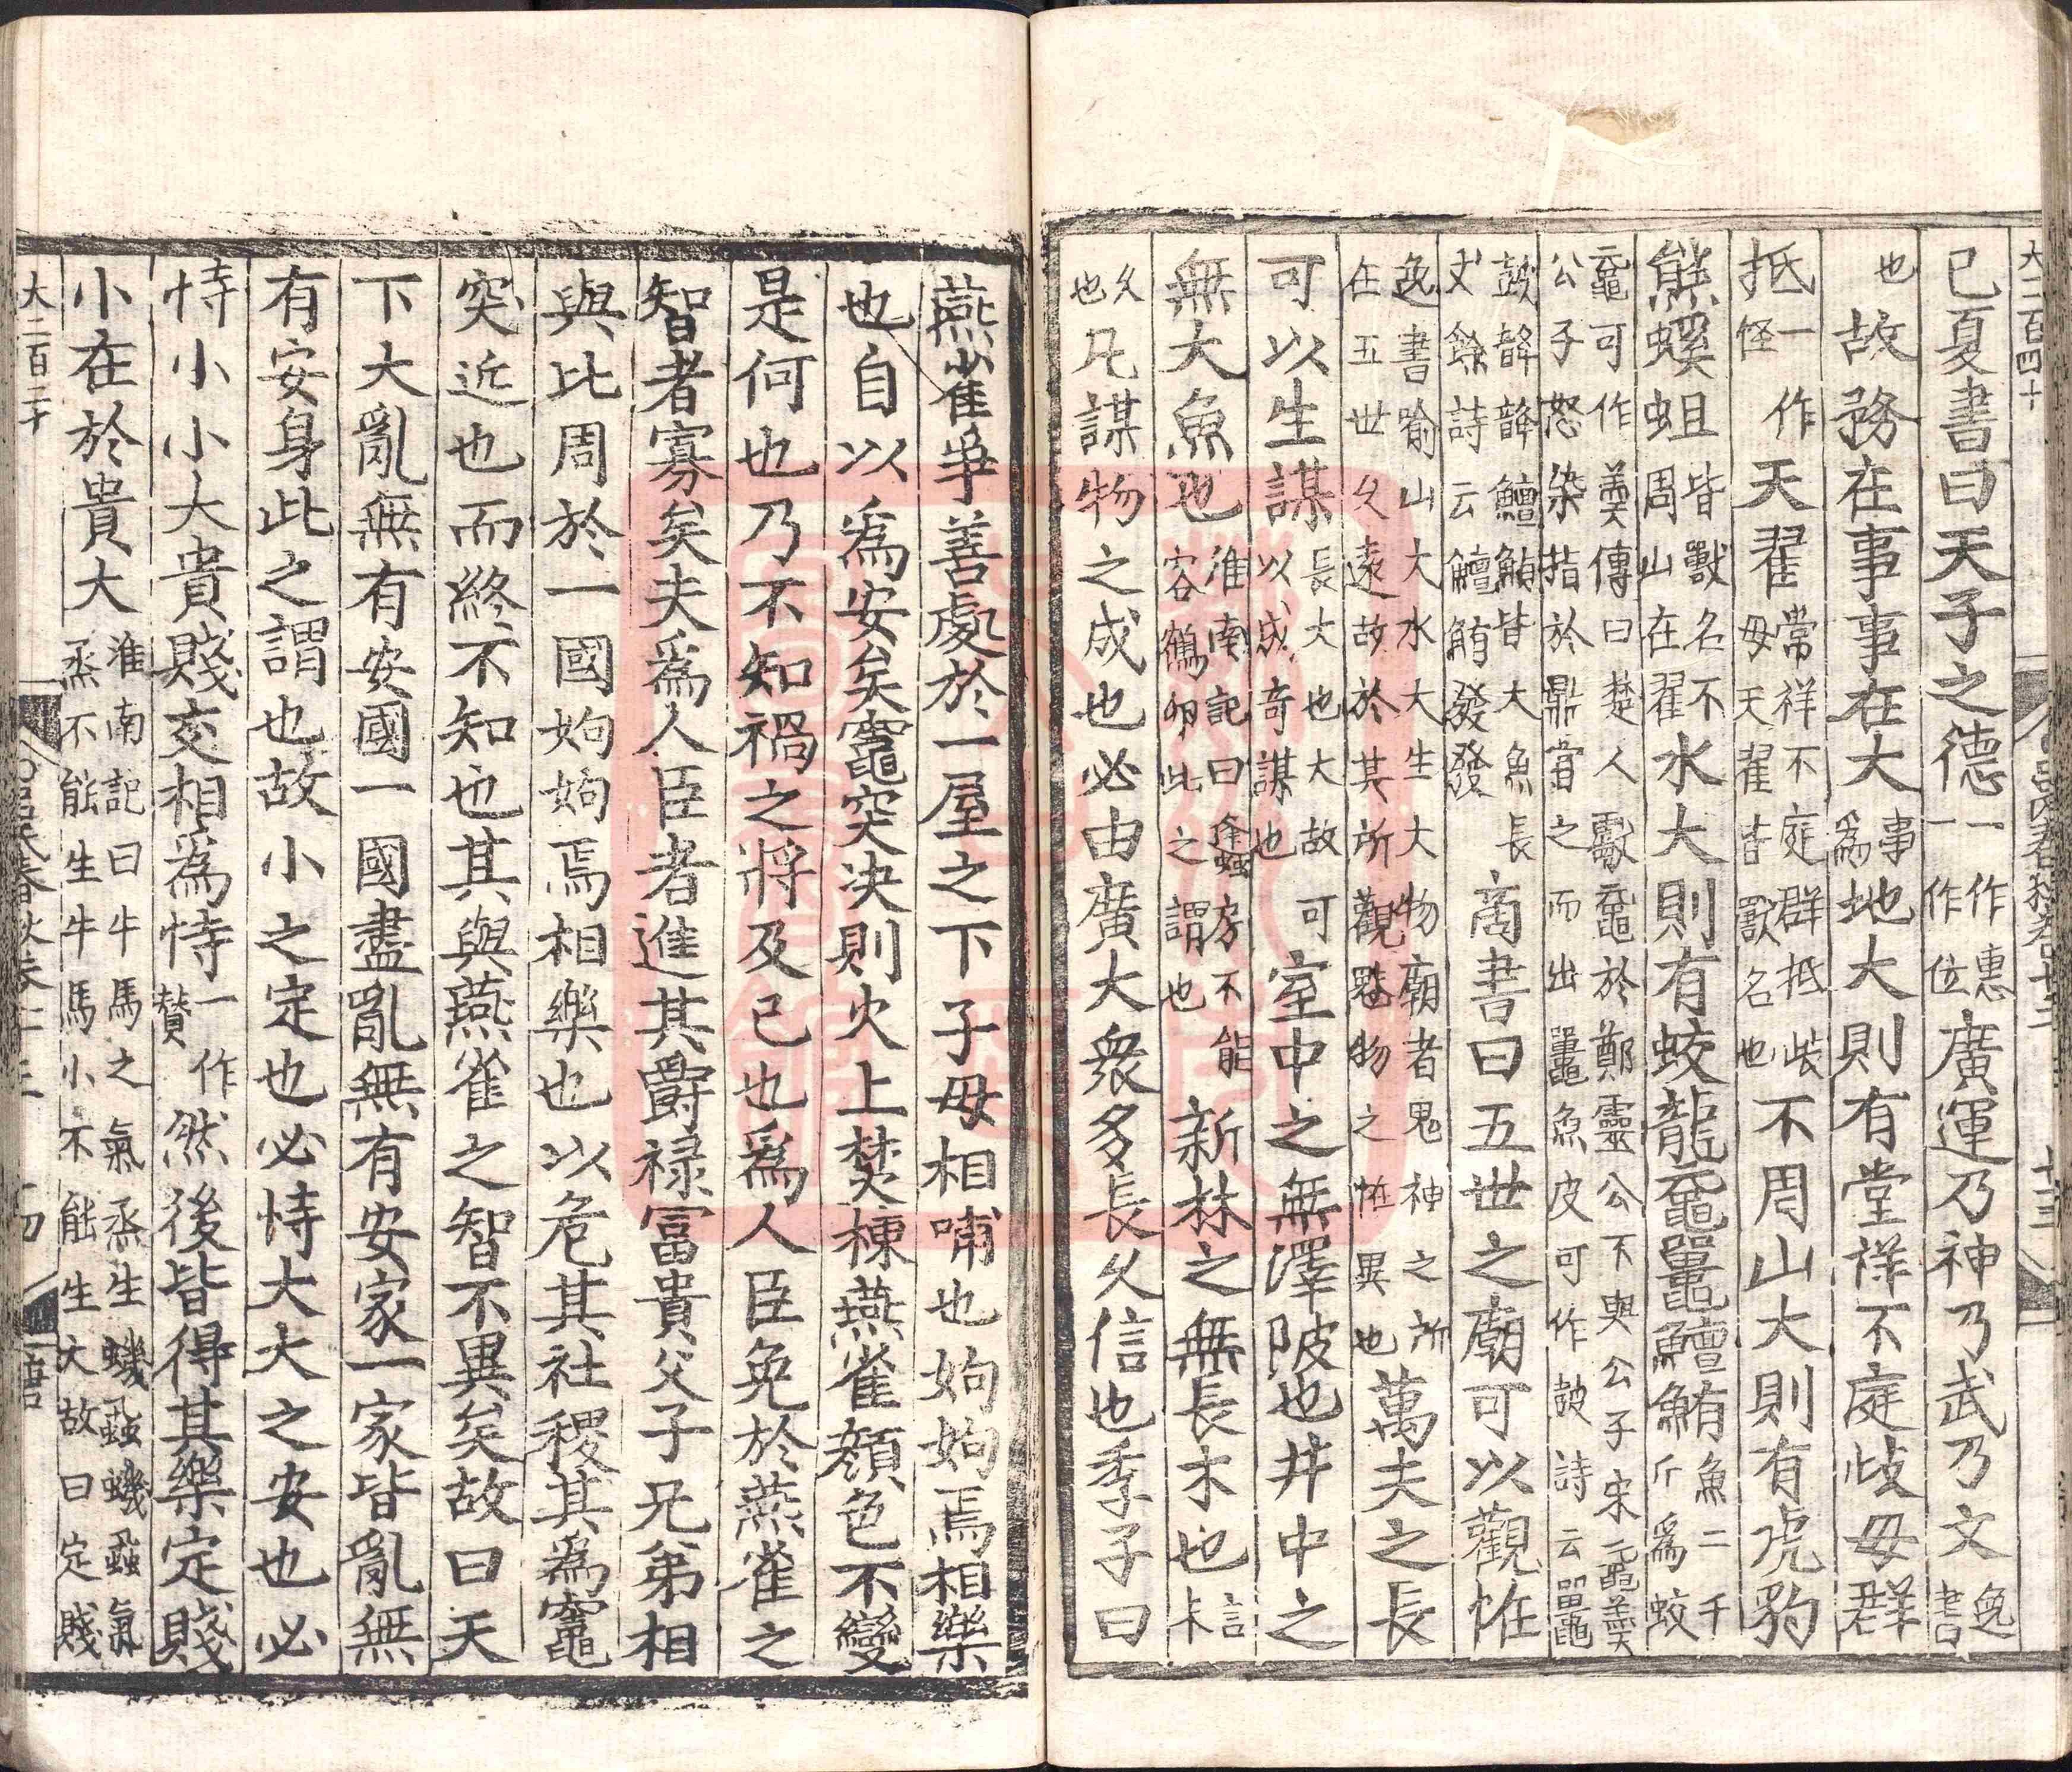 大二百四十 呂氏春秋卷十三 十三
已夏書曰天子之德一作惠一作位廣運乃神乃武乃文逸書
也故務在事事在大事爲地大則有堂祥不庭歧毋群
抵一作怪天翟常祥不庭群抵歧毋天翟皆獸名也不周山大則有虎豹
熊螇蛆皆獸名不周山在翟水大則有蛟龍黿鼉鱣鮪魚二千斤爲蛟
黿可作羹傳曰楚人獻黿於鄭靈公不與公子宋黿羹公子怒染指於鼎嘗之而出鼉魚皮可作鼓詩云鼉
鼓韸韸鱣鮪皆大魚長丈餘詩云鱣鮪發發商書曰五世之廟可以觀恠
逸書喻山大水大大生大物廟者鬼神之所在五世乆遠故於其所觀魅物之恠異也萬夫之長
可以生謀長大也大故可以成奇謀也室中之無澤陂也井中之
無大魚也淮南記曰蠭房不能容鶴卵此之謂也新林之無長木也言未
乆也凡謀物之成也必由廣大衆多長乆信也季子曰
燕雀爭善處於一屋之下子母相哺也姁姁焉相樂
也自以爲安矣竈突決則火上焚棟燕雀顏色不變
是何也乃不知禍之將及己也爲人臣免於燕雀之
智者寡矣夫爲人臣者進其爵祿富貴父子兄弟相
與比周於一國姁姁焉相樂也以危其社稷其爲竈
突近也而終不知也其與燕雀之智不異矣故曰天
下大亂無有安國一國盡亂無有安家一家皆亂無
有安身此之謂也故小之定也必恃大大之安也必
恃小小大貴賤交相爲恃一作贊然後皆得其樂定賤
小在於貴大淮南記曰牛馬之氣烝生蟣蝨蟣蝨氣烝不能生牛馬小不能生大故曰定賤
大二百二十 呂氏春秋卷十三 十四